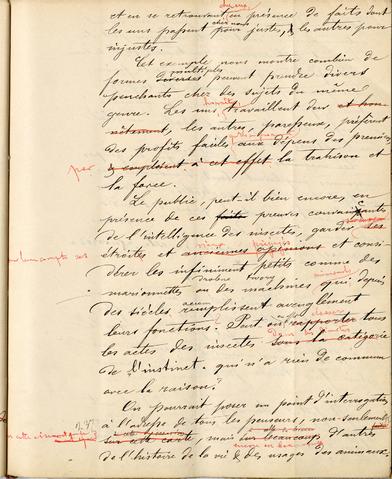 et en se retrouvant en présence de faits dont
les uns passent chez nous pour justes, & les autres pour
injustes.
Cet exemple nous montre combien de
formes diverses multiples peuvent prendre divers
penchants chez des sujets du même
genre. Les uns, travaillent dur et hon-
nêtement, les autres, paresseux, préfèrent
des profits faciles aux dépens des premiers
par & emploient à cet effet la trahison et
la force.
Le public, peut-il bien encore, en
présence de ces faits preuves convaincantes
de l'intelligence des insectes, garder des
étroites et anciennes opinions et consi-
dérer les infiniment petits comme des
marionnettes ou des machines qui depuis
des siècles remplissent aveuglément
leurs fonctions? Doit on rapporter tous
les actes des insectes sous la catégorie
de l'instinct qui n'a rien de commun
avec la raison?
On pourrait poser un point d'interrogation
à l'adresse de tous les penseurs, non-seulement
sur cette carte, mais sur beaucoup d'autres
de l'histoire de la vie & des usages des animaux.